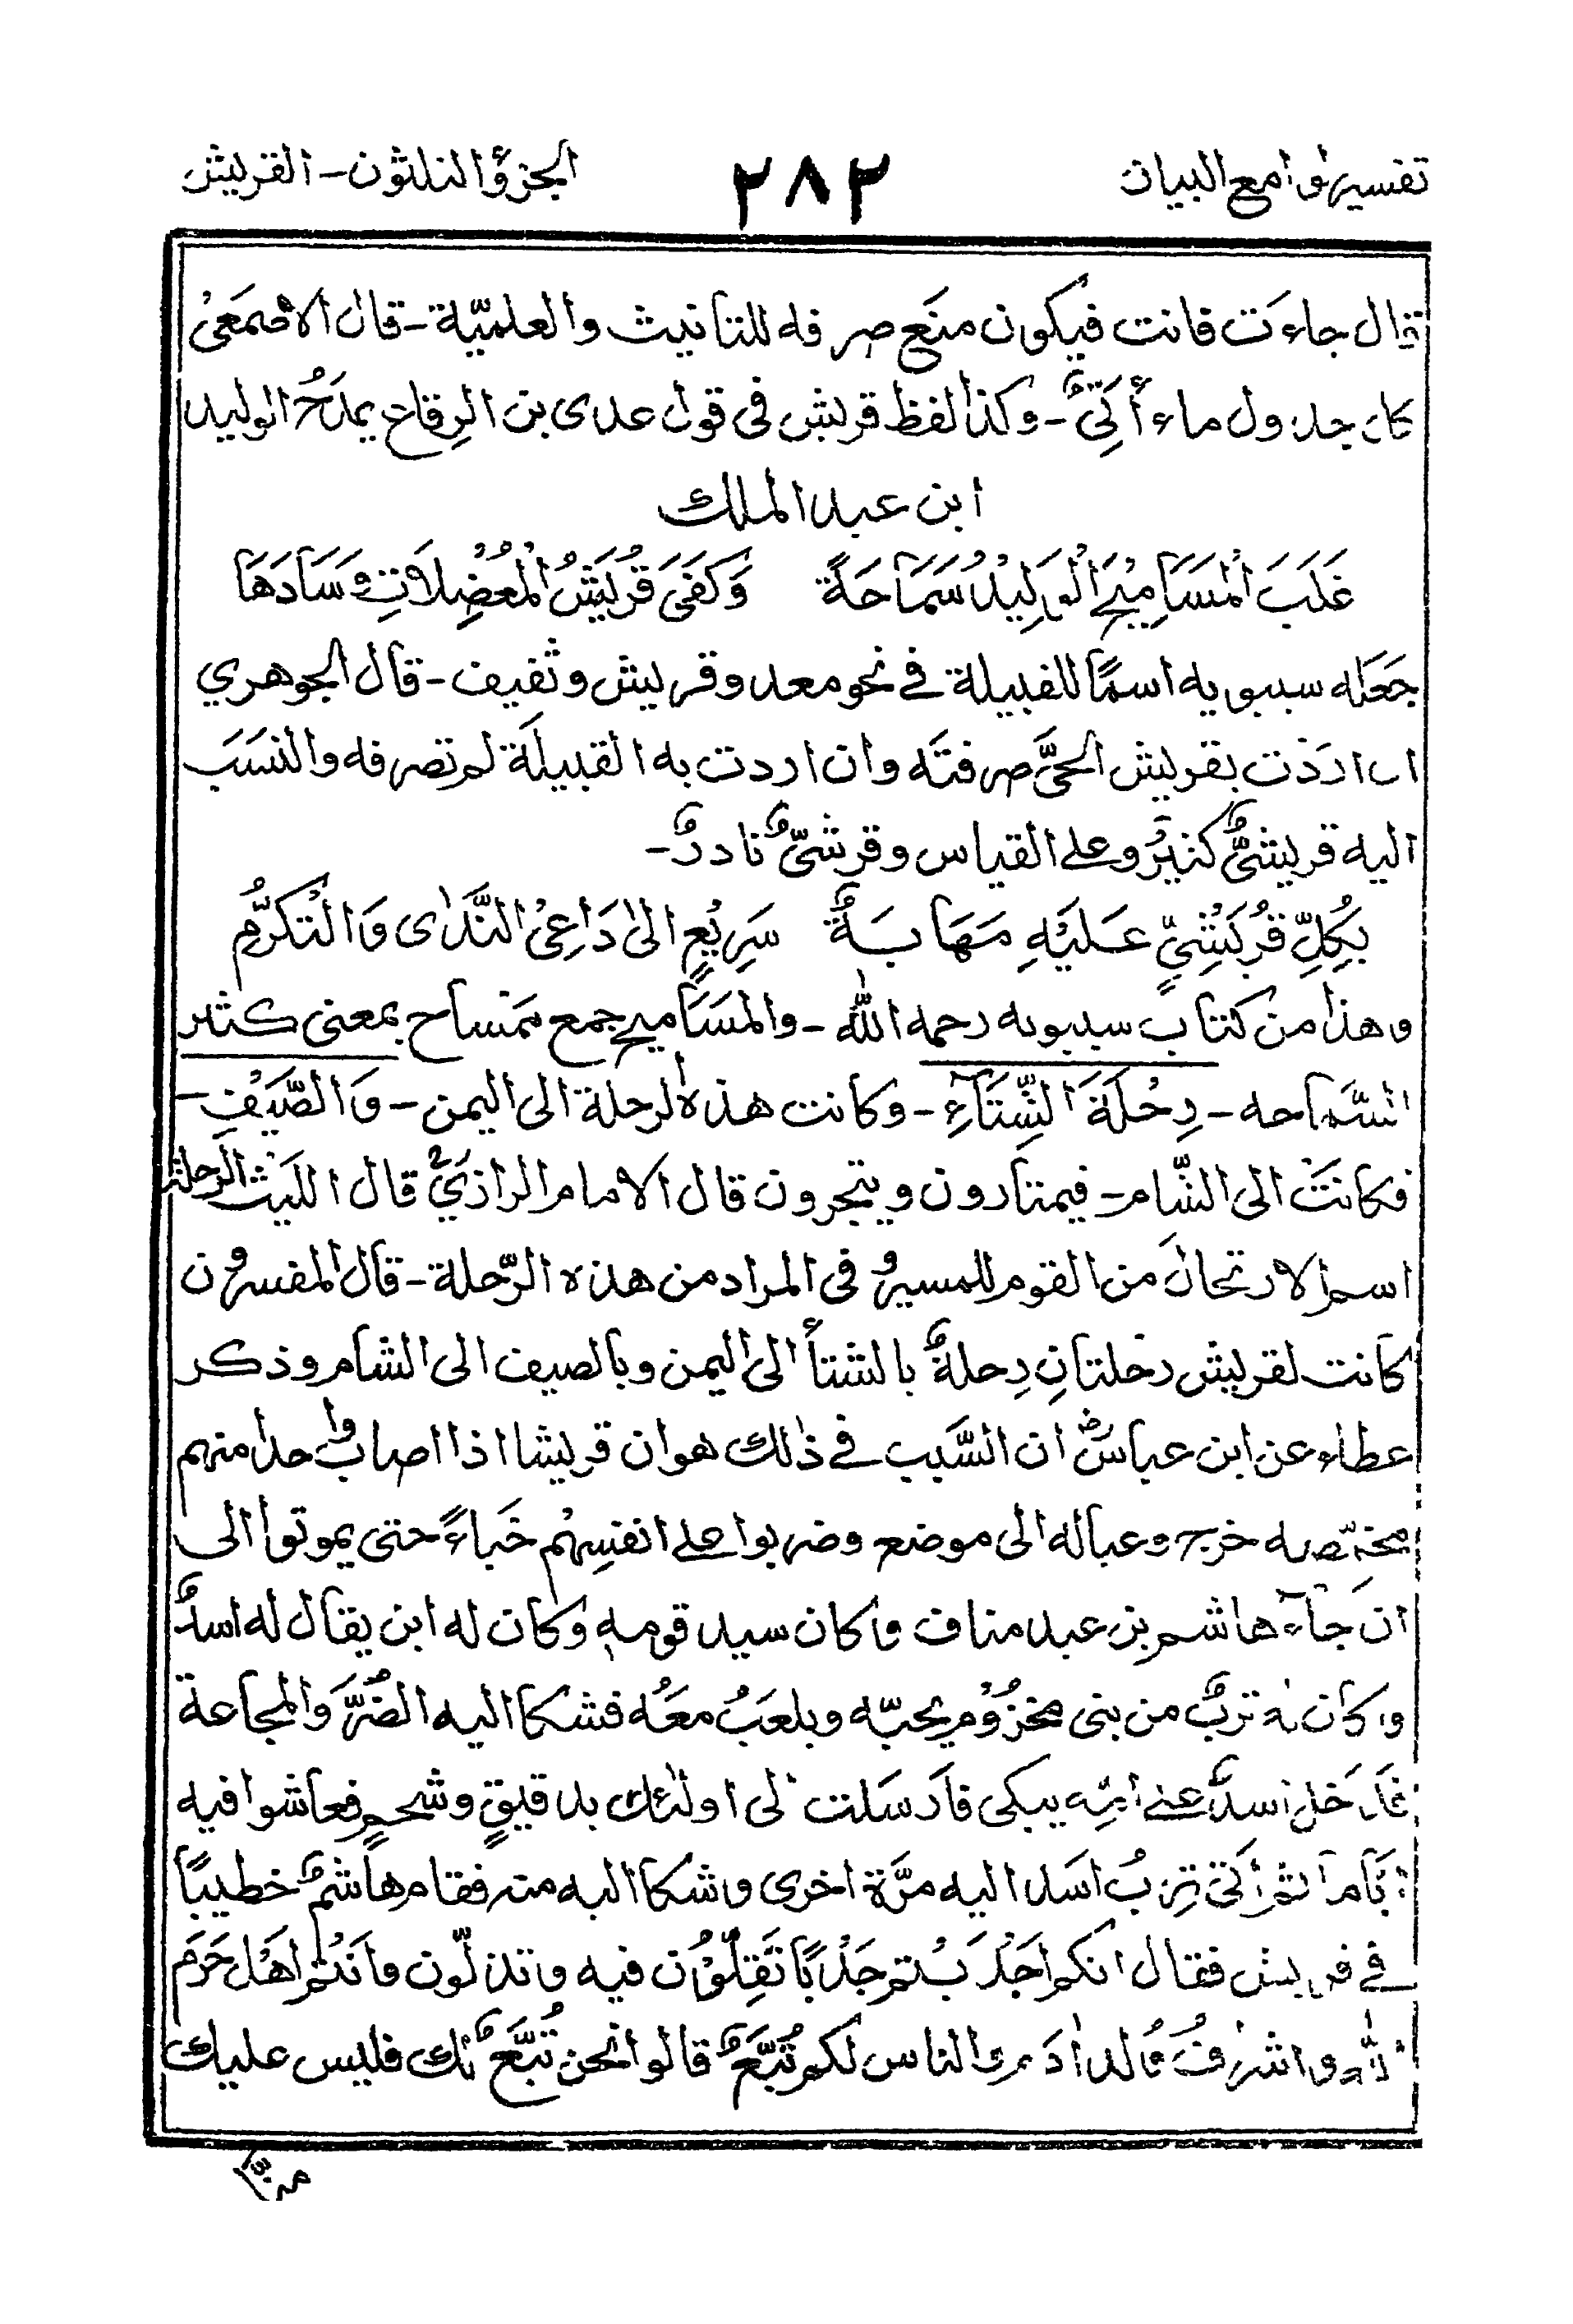 تفسير لوامع البيان
٢٨٢
الجزؤ الثلثون - القريش
قال جاءت فانت فيكون منَع صرفه للتانيث والعلميّة - قال الاصمَعىُ
كل جدول ماء أُتِيٌّ - وكذا لفظ قريش فى قول عدى بن الرِقاع يمدَحُ الوليد
ابن عبد الملك
غَلَبَ الْمَسَامِيْحَ الْوَلِيْدُ سَمَاحَةً وَكَفَى قُرَيْشُ الْمُعْضِلَاتِ وَسَادَهَا
جَعَله سيبويه اسمًا للقبيلة فے نحو معد وقريش وثقيف - قال الجوهري
ان اردت بقريش الحىَّ صرفتَه وان اردت به القبيلَة لم تصرفه والنسَبَ
اليه قريشىٌّ كثيرٌ وعلے القياس وقرشىٌّ نادرٌ -
بِكُلِّ قُرَيْشِيٍّ عَلَيْهِ مَهَابَةٌ سَرِيْعٍ الىٰ دَاعِىْ النَّدٰى وَالْتكَرُّمِ
وهذا من كتاب سيبويه رحمه الله - والمسَاميح جمع مَمساح بمعنى كثير
السَّماحه - رِحْلَةَ الشِّتَآءِ - وكانت هذه الرحلة الى اليمن - وَالصَّيْفِ -
فكانَتْ الى الشّام - فيمتارون ويتجرون قال الامام الرازىؒ قال الليث الرحلة
اسم الارتحال من القوم للمسير وفى المراد من هذه الرّحلة - قال المفسرون
كانت لقريش رحلتانِ رِحلةٌ بالشتأ الى اليمن وبالصيف الى الشام وذكر
عطاء عن ابن عباسؓ ان السَّبب فے ذٰلك هو ان قريشا اذا اصاب واحدا منهم
مخمصه خرج وعياله الى موضع وضربوا علے انفسِهُم خَباءً حتى يموتوا الى
ان جآء هاشم بن عبد مناف وكان سيد قومه وكان له ابن يقال له اسدٌ
وكان له تربٌ من بنى مخزُوْم يحبّه ويلعَبُ معَه فشكا اليه الضُرَّ والمجاعة
فدَخل اسدٌ علے امِّه يبكى فارسَلت الى اولٰئك بدقيقٍ وشحمٍ فعاشوا فيه
ايّاما ثم أتى تِربُ اسَد اليه مرَّة اخرى وشكا اليه فقام هاشمٌ خطيبًا
فے قريش فقال انكم اجْدَبْتم جَدْبًا تَقِلُّوْن فيه وتذلّون وانْتُم اهْل حَرَم
الله واشرفُ ولد ادَم والناس لكم تُبَّعٌ قالوا نحن تُبَّعٌ لك فليس عليك
منّا